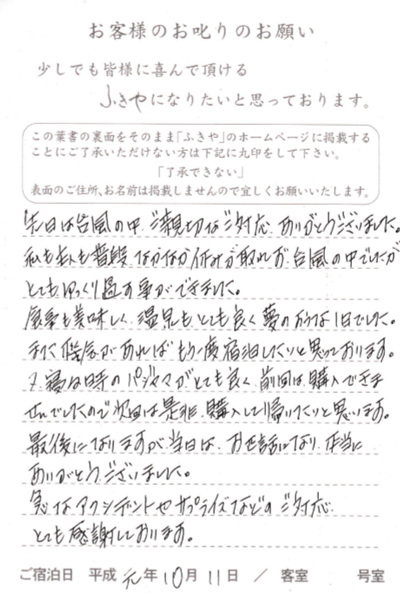 お客様のお叱りのお願い
少しでも皆様に喜んで頂ける
ふきやになりたいと思っております。
この葉書の裏面をそのまま「ふきや」のホームページに掲載する
ことにご了承いただけない方は下記に丸印をして下さい。
「了承できない」
表面のご住所、お名前は掲載しませんので宜しくお願いいたします。
先日は台風の中、ご親切なご対応、ありがとうございました。
私も主人も普段、なかなか休みが取れず、台風の中でしたが
とてもゆっくり過す事ができました。
食事も美味しく、温泉も、とても良く夢のような1日でした。
また機会があれば、もう一度宿泊したいと思っております。
又、寝る時のパジャマがとても良く、前回は、購入できま
せんでしたので次回は是非、購入して帰りたいと思います。
最後になりますが当日は、お世話になり、本当に
ありがとうございました。
急なアクシデントやサプライズなどのご対応、
とても感謝しております。
ご宿泊日 平成 元年 10月 11日 / 客室 号室